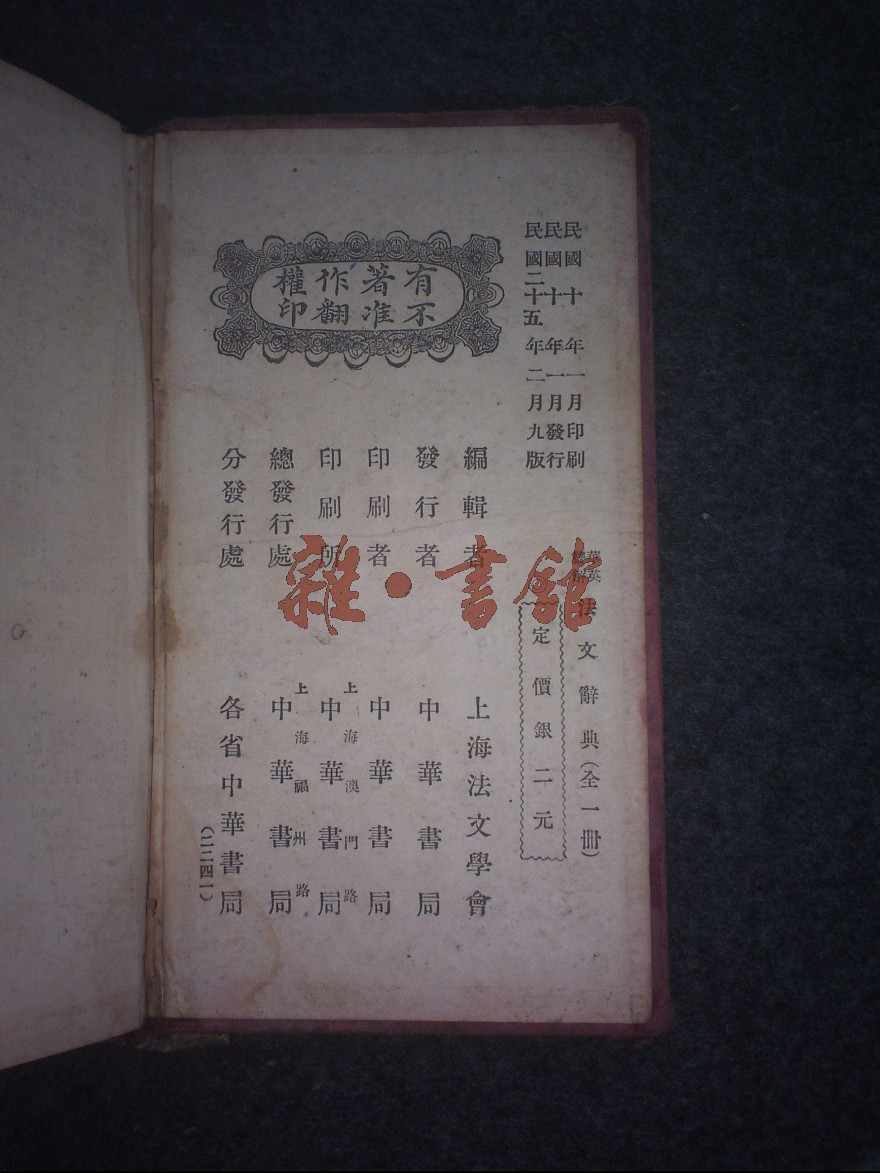 民國十年一月印刷
民國十年一月發行
民國二十五年二月九版
華英
法文辭典(全一冊)
定價銀二元
有著作權
不准翻印
編輯者 上海法文學會
發行者 中華書局
印刷者 中華書局
上海澳門路
印刷所 中華書局
上海福州路
總發行處 中華書局
分發行處 各省中華書局
(二二四一)
雜·書館